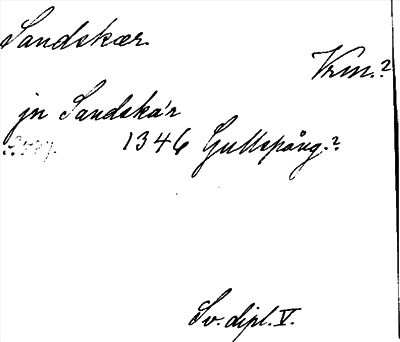 Sandskær.
Vrm.?
jn Sandskær
1346 Gullspång.?
Sv. dipl. V.